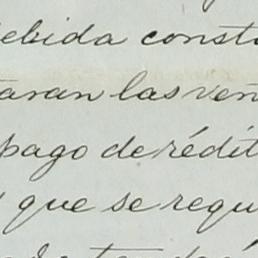 debida consta
taran las ven
pago de rédit
que se requ